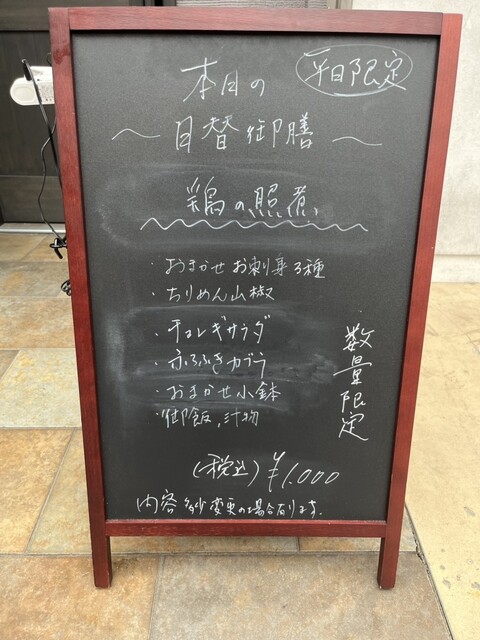 平日限定
本日の
～日替御膳～
鶏の照煮
・おまかせお刺身3種
・ちりめん山椒
・チョレギサラダ
・ふろふきカブラ
・おまかせ小鉢
・御飯,汁物
数量限定
(税込)¥1,000
内容多少変更の場合有ります.